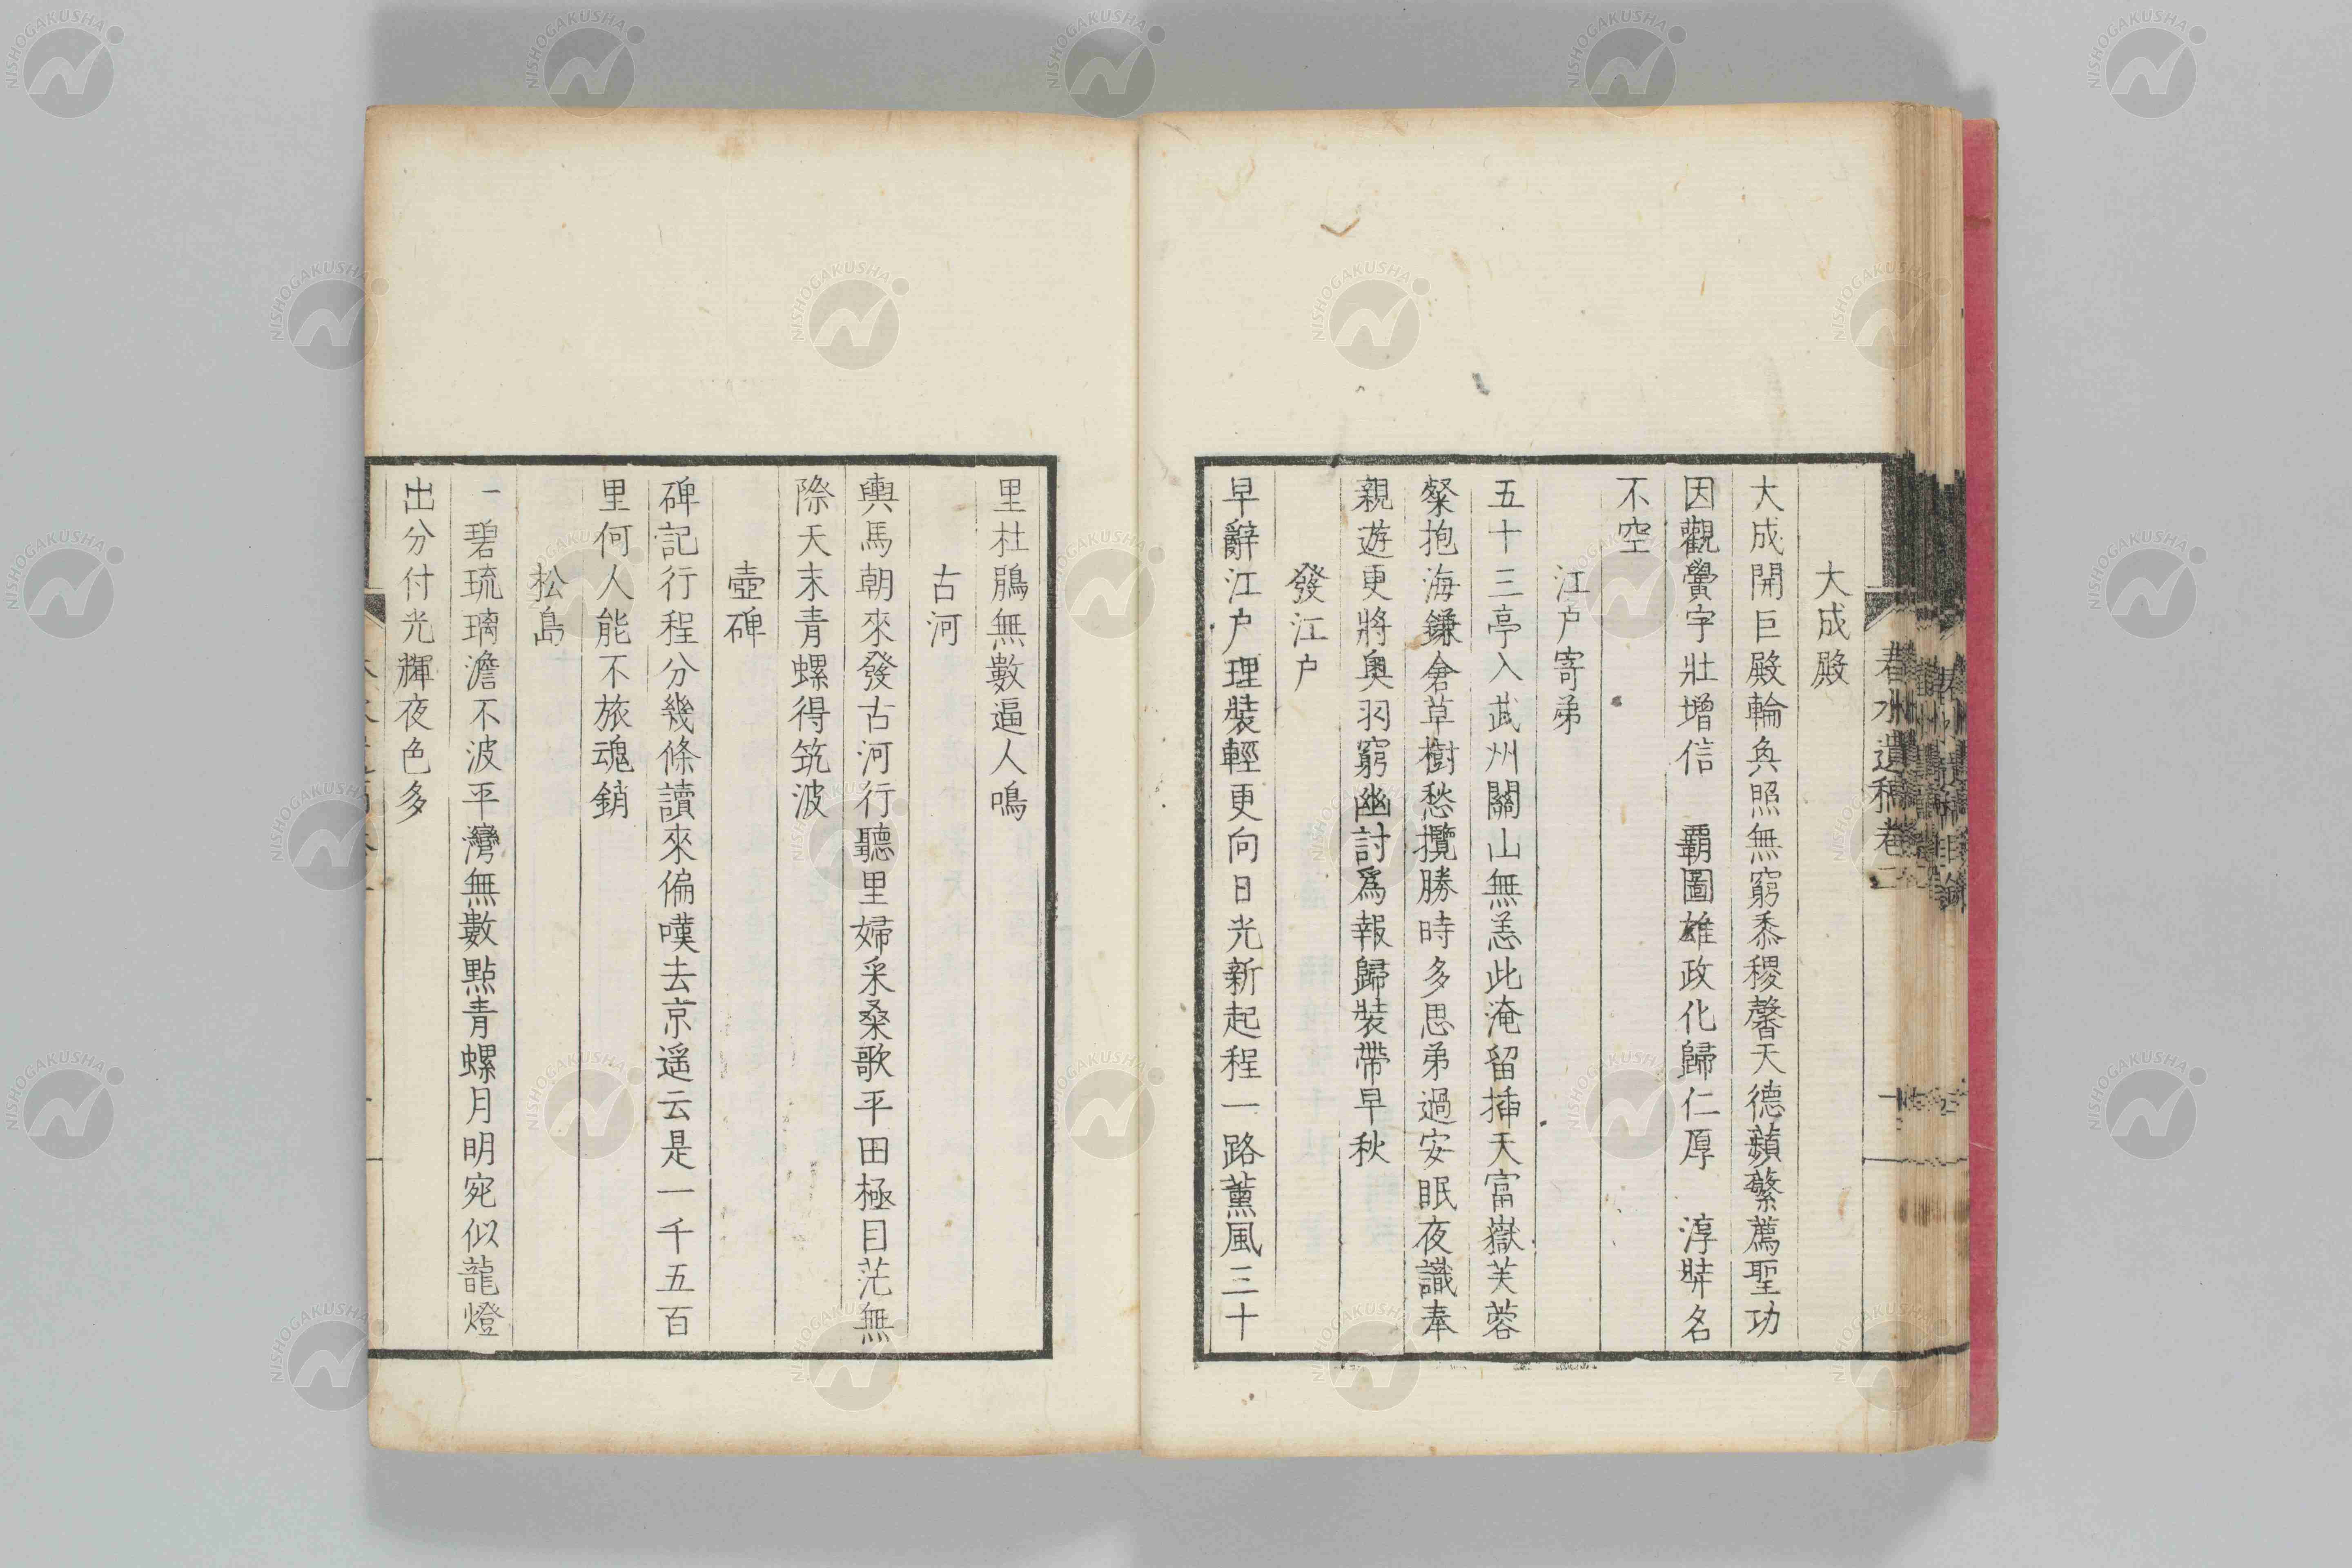 大成殿
大成開巨殿輪奐照無窮黍稷馨天德蘋蘩薦聖功
因觀黌宇壯增信　覇圖雄政化歸仁厚　淳時名
不空
江戸寄弟
五十三亭入武州關山無恙此淹留插天富嶽芙蓉
粲抱海鎌倉草樹愁攬勝時多思弟過安眠夜識奉
親遊更將奧羽窮幽討爲報歸裝帶早秋
發江戸
早辭江戸理裝輕更向日光新起程一路薰風三十
里杜鵑無數逼人鳴
古河
輿馬朝來發古河行聽里婦采桑歌平田極目茫無
際天末青螺得筑波
壺碑
碑記行程分幾條讀來偏嘆去京遥云是一千五百
里何人能不旅魂銷
松島
一碧琉璃澹不波平灣無數點青螺月明宛似龍燈
出分付光輝夜色多
春水遺稿卷二
NISHOGAKUSHA